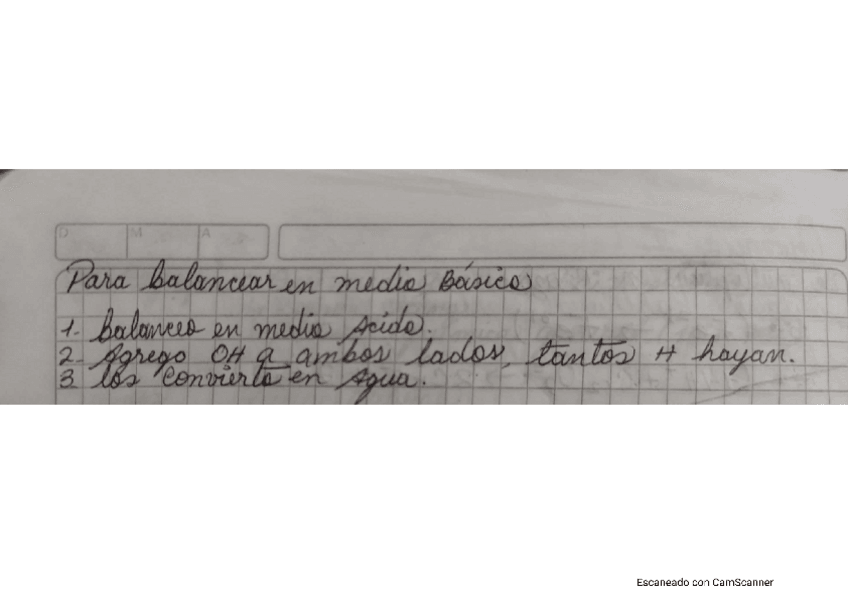 D M A
Para balancear en medio Básico
1- balanceo en medio Acido.
2- Agrego OH a ambos lados, tantos H hayan.
3 los convierto en Agua.
Escaneado con CamScanner